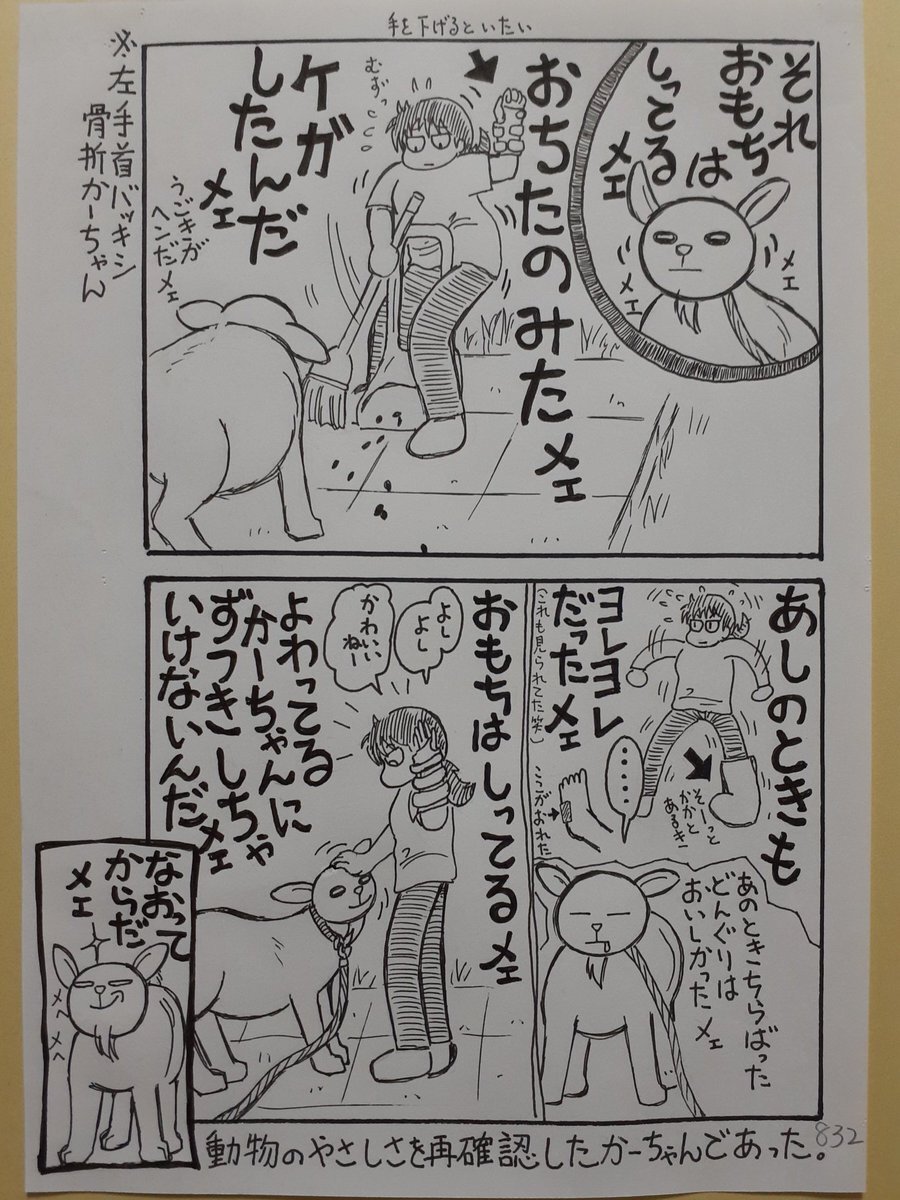 手を下げるといたい
※左手首バッキシ
骨折かーちゃん
それ
おもちは
しってる
メェ
メェ
メェ
メェ
おちたのみたメェ
むずっ
ケガ
したんだ
メェ
うごきが
ヘンだメェ
あしのときも
ヨレヨレ
だったメェ
(これも見られてた笑)
そーっと
かかと
あるき
ここがおれた
‥‥‥
あのときちらばった
どんぐりは
おいしかったメェ
おもちはしってるメェ
よし
よし
かわいい
ねー
よわってる
かーちゃんに
ずつきしちゃ
いけないんだ
メェ
なおって
からだ
メェ
メヘメヘ
動物のやさしさを再確認したかーちゃんであった。
832